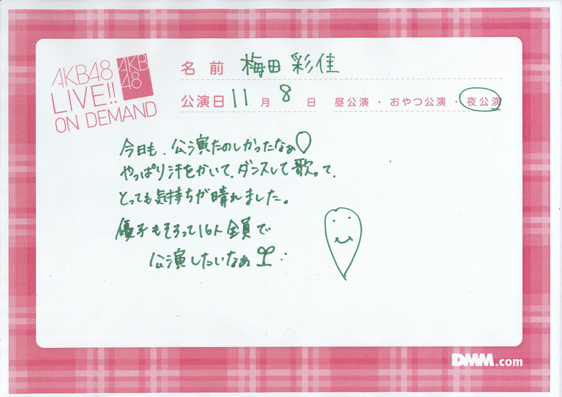 AKB48
LIVE!!
ON DEMAND
AKB
48
名前 梅田 彩佳
公演日 11 月 8 日 昼公演・おやつ公演・夜公演
今日も、公演たのしかったなぁ
やっぱり汗をかいて、ダンスして歌って、
とっても気持ちが晴れました。
優子もそろって16人全員で
公演したいなぁ
DMM.com